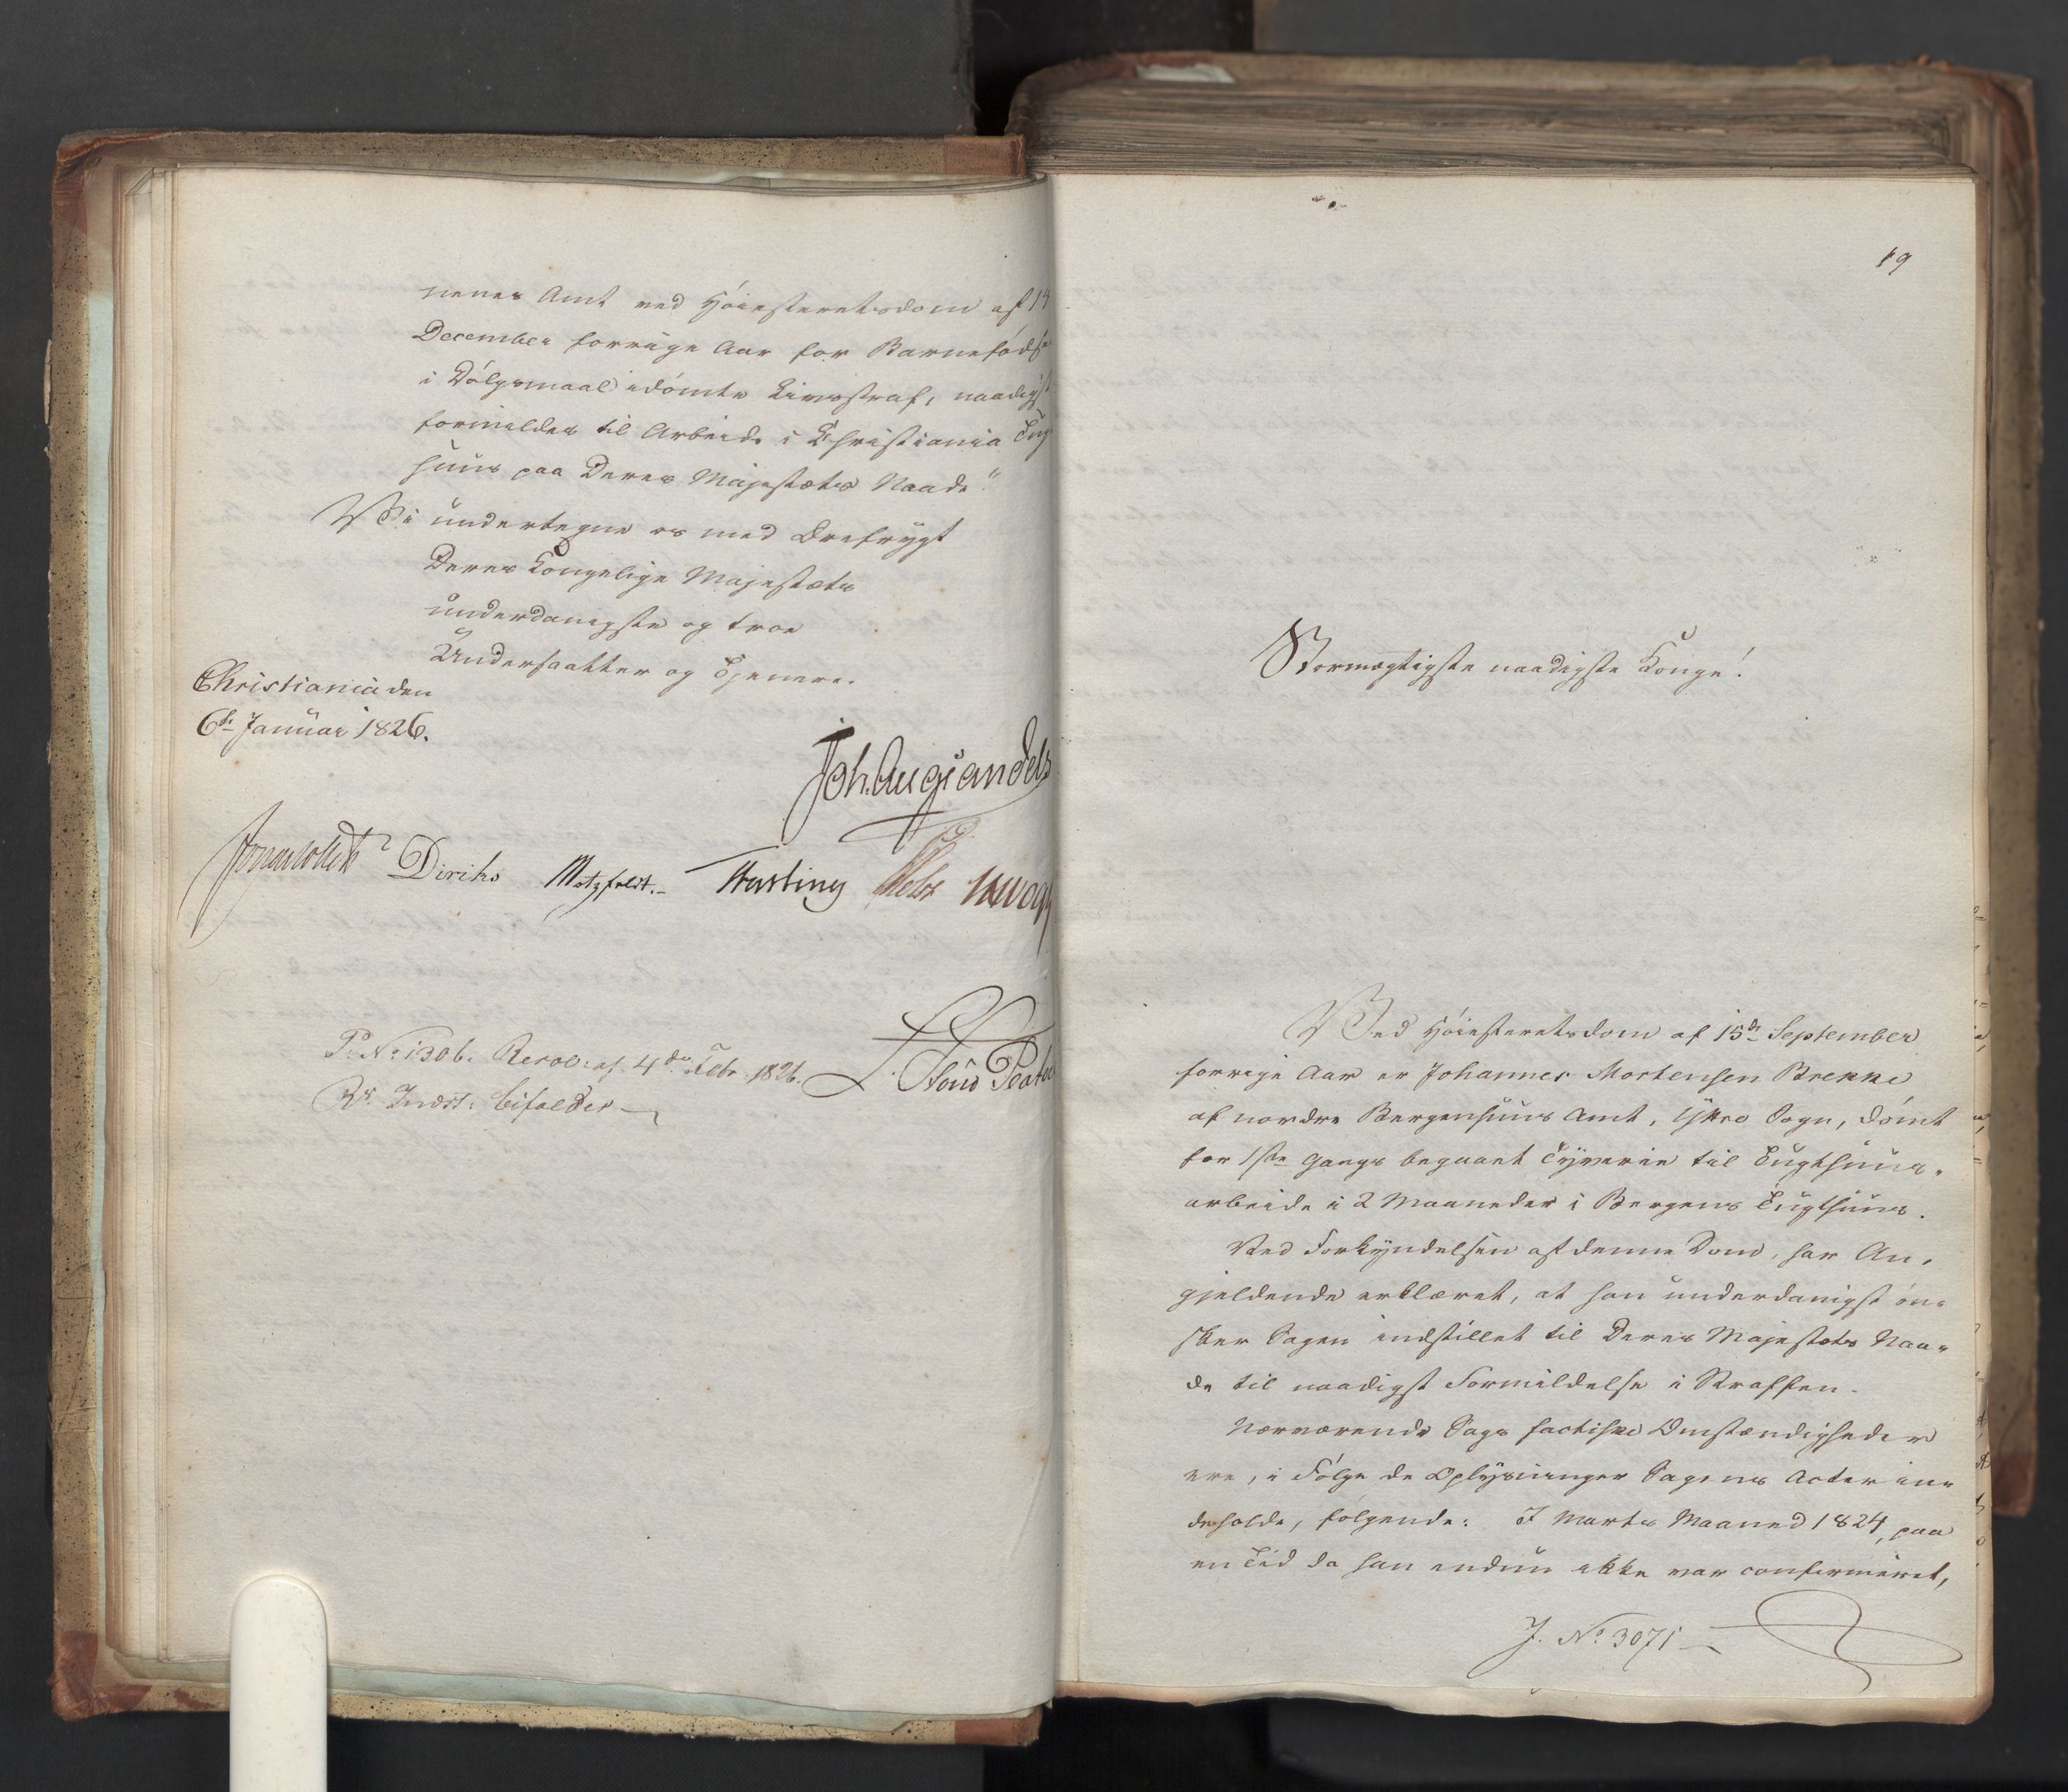 nenes Amt ved Höiesteretsdom af 14
December forrige Aar for Barnefödsel
i Dölgsmaal idömte Livsstraf, naadigst
formildes til Arbeide i Christiania Tugt
huus paa Deres Majestæts Naade."
Vi undertegne os med Ærefrygt
Deres Kongelige Majestæts
underdanigste og troe
Undersaatter og Tjenere.
Christiania den
6te Januar 1826.
Joh. Aug Sandels
Jonas Collett Diriks Motzfeldt. Krog
P. No 1306. Resol: af 4de Febr 1826.
Kr. Indst: bifaldes
19
Stormægtigste naadigste Konge!
Ved Höiesteretsdom af 15de September
forrige Aar er Johannes Mortensen Brekke
af nordre Bergenhuus Amt, Sogn, dömt
for 1ste Gangs begaaet Tyverie til Tugthuus-
arbeide i 2 Maaneder i Bergens Tugthuus.
Ved Forkyndelsen af denne Dom, har An-
gjeldende erklæret, at han underdanigst ön-
sker Sagen indstillet til Deres Majestæts Naa-
de til naadigst Formildelse i Straffen.
Nærværende Sags factiske Omstændigheder
ere, i Fölge de Oplysninger Sagens Acter in-
deholde, fölgende: I Marts Maaned 1824, paa
en Tid da han endnu ikke var confirmeret,
J. No 3071